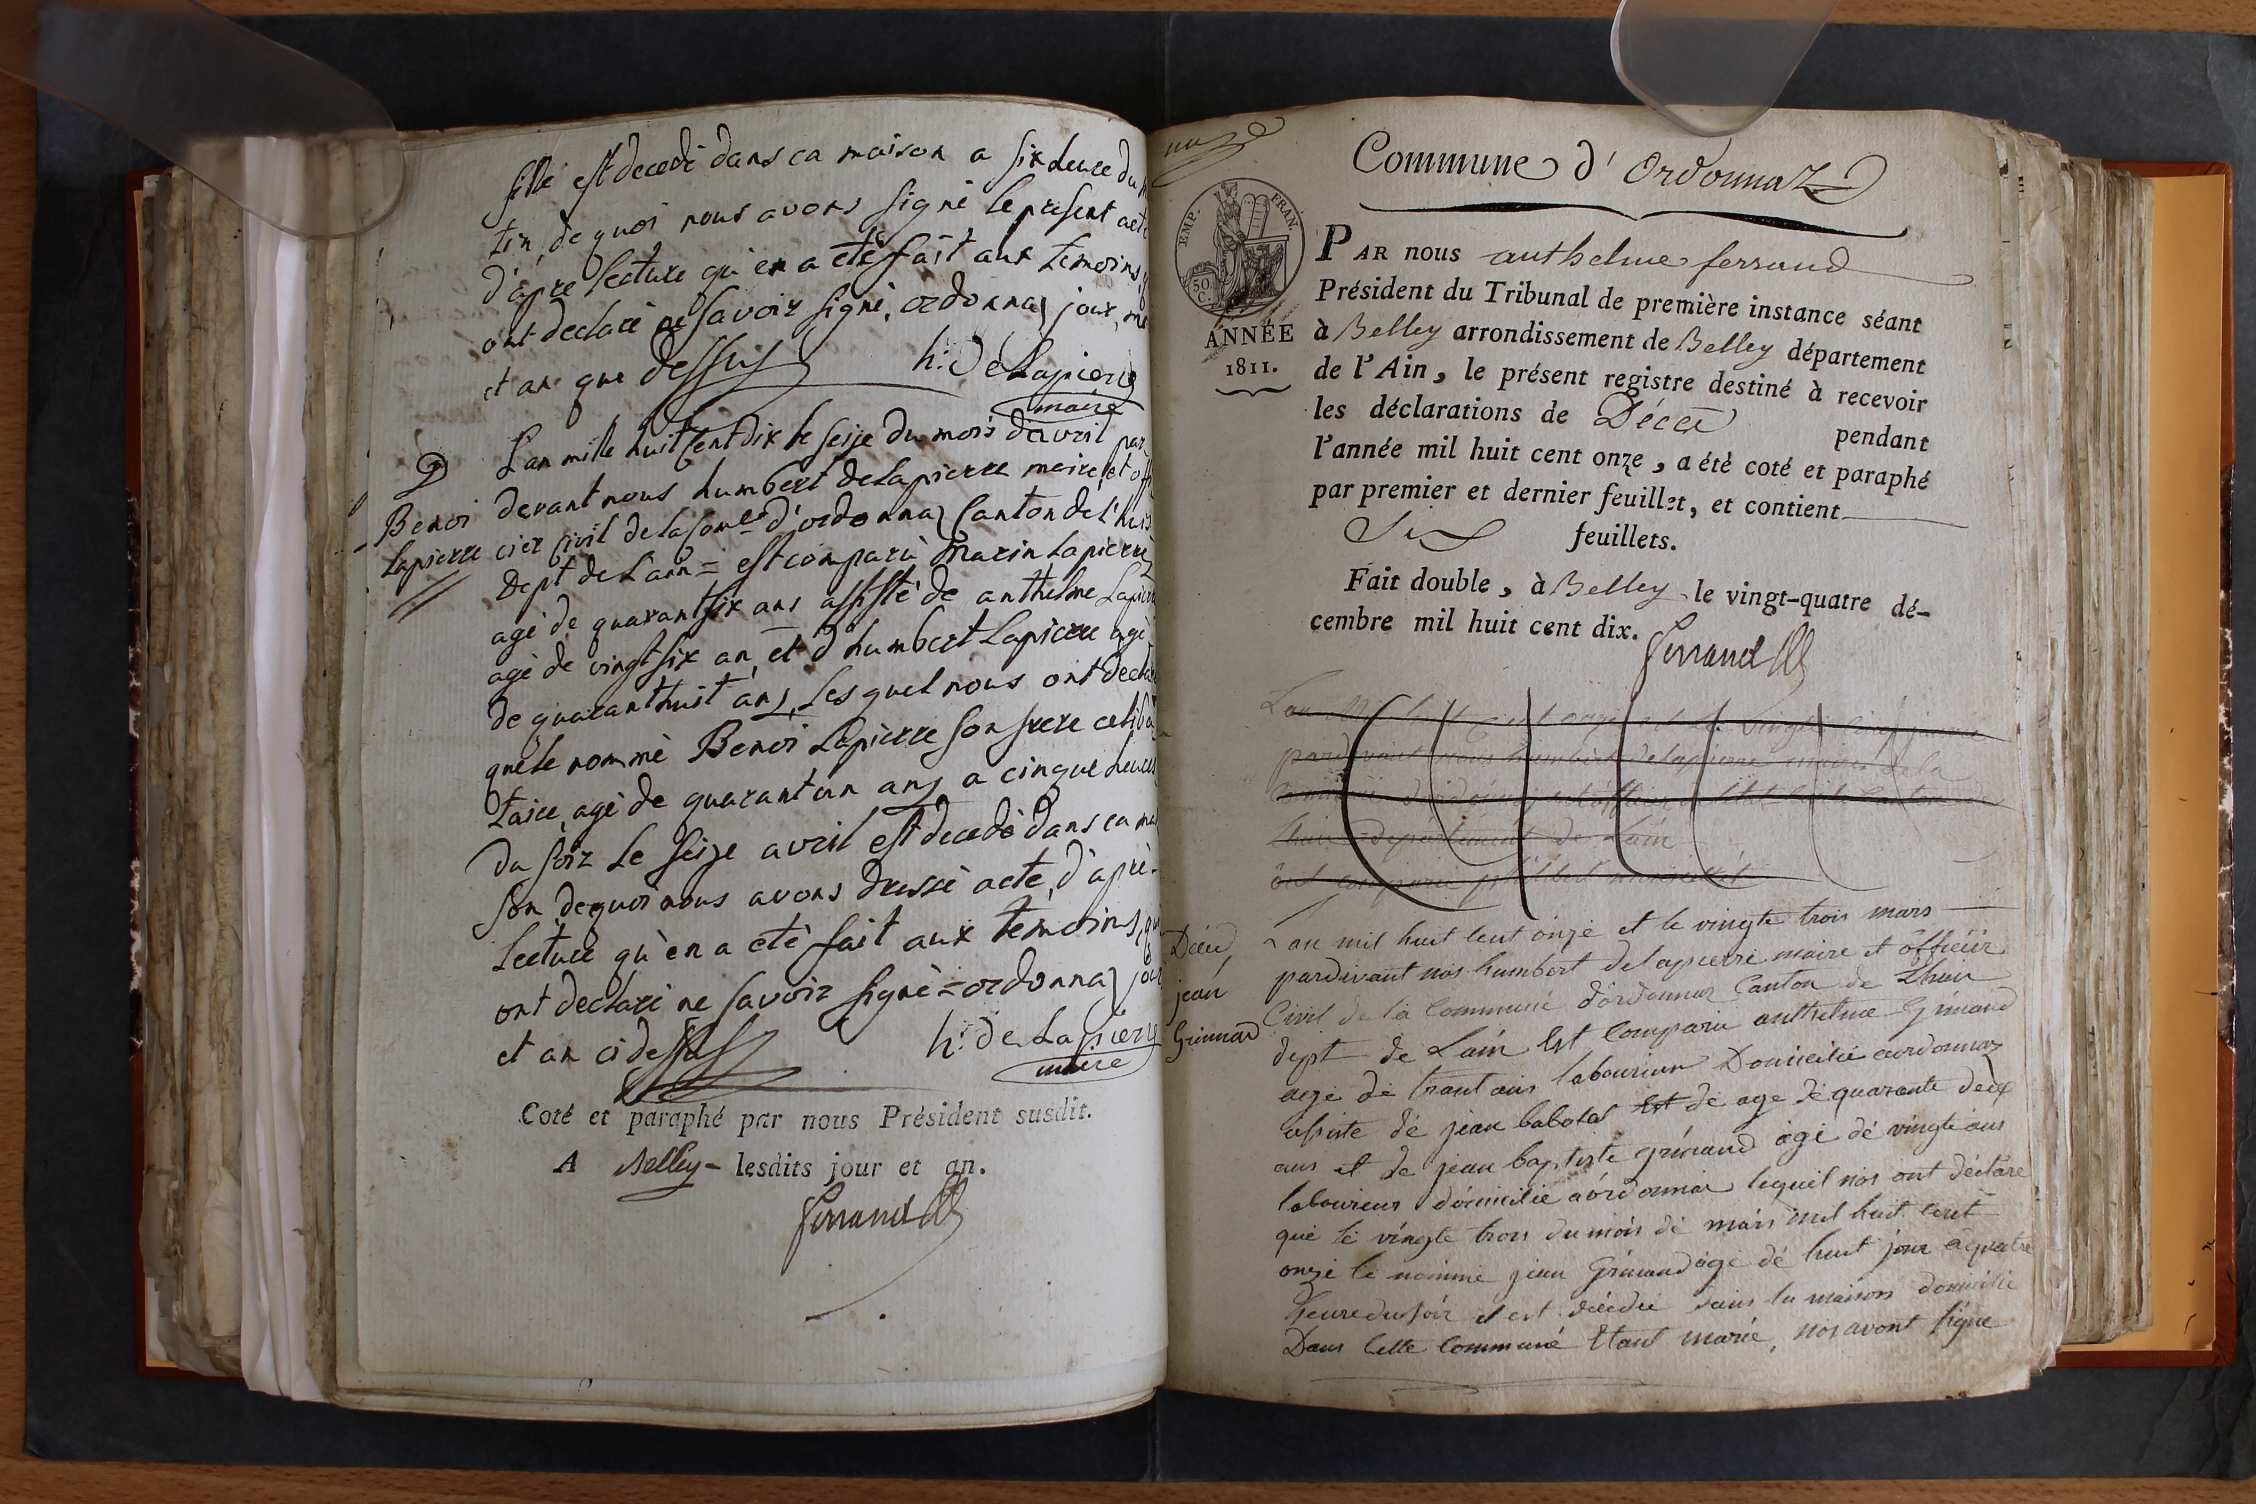 fille est decedé dans ca maison a six heure du
tin, de quoi nous avons signé le present acte
d'apre lecture qu'en a eté fait aux temoins
ont declaré ne savoir signé, ordonnaz jour,
et an que dessus h. de Lapierre
maire
D L'an mille huit cent dix le seize du mois d'avril par
Benoi devant nous humbert delapierre maire et offi
Lapierre cier civil de la Com.ne d'ordonnaz Canton de l'huis
Dept de Lain = est comparu marin Lapierre
agé de quarantsix ans assisté de anthelme Lapierre
agé de vingtsix an, et d'humbert Lapierre agé
de quaranthuit ans, Lesquel nous ont declaré
que le nommé Benoi Lapierre son frere celiba
taire, agé de quarantun ans a cinque heures
du soir le seize avril est decedé dans ca mai
son de quoi nous avons dressé acte, d'aprè
Lecture qu'en a eté fait aux temoins, qui
ont declaré ne savoir signé = ordonnaz jour
et an ci dessus h. de Lapierre
maire
Coté et paraphé par nous Président susdit.
A Belley - lesdits jour et an.
Ferrand
Commune d'Ordonnaz
EMP. FRAN.
50 C.
ANNÉE
1811.
PAR nous anthelme ferrand
Président du Tribunal de première instance séant
à Belley arrondissement de Belley département
de l'Ain, le présent registre destiné à recevoir
les déclarations de Décès pendant
l'année mil huit cent onze, a été coté et paraphé
par premier et dernier feuillet, et contient
Six feuillets.
Fait double, à Belley le vingt-quatre dé-
cembre mil huit cent dix.
Ferrand
L'an mil huit cent onze et le vingt cinq
pardevant nous humbert delapierre maire de la
Commune d'ordonnaz
huis departement de Lain
est comparu
L'an mil huit cent onze et le vingte trois mars
Décé
jean
Grinand
pardivant nos humbert delapierre maire et officier
Civil de la Commune d'ordonnaz Canton de Lhui
dept de Lain Est Comparu anthelme Grinand
age de trant ans laboureur Domicilié aordonnaz
assisté dé jean babolat est de age de quarante deux
ans et de jean baptiste grinand agé dé vingte ans
laboureur domicilié aordonnaz lequel nos ont déclare
que le vingte trois du mois de mars mil huit cent
onze le nommé jean Grinand agé dé huit jour a quatre
heure du soir et est décédé dans la maison domicilié
Dans Cette Commune Etant marié, nos avont signe